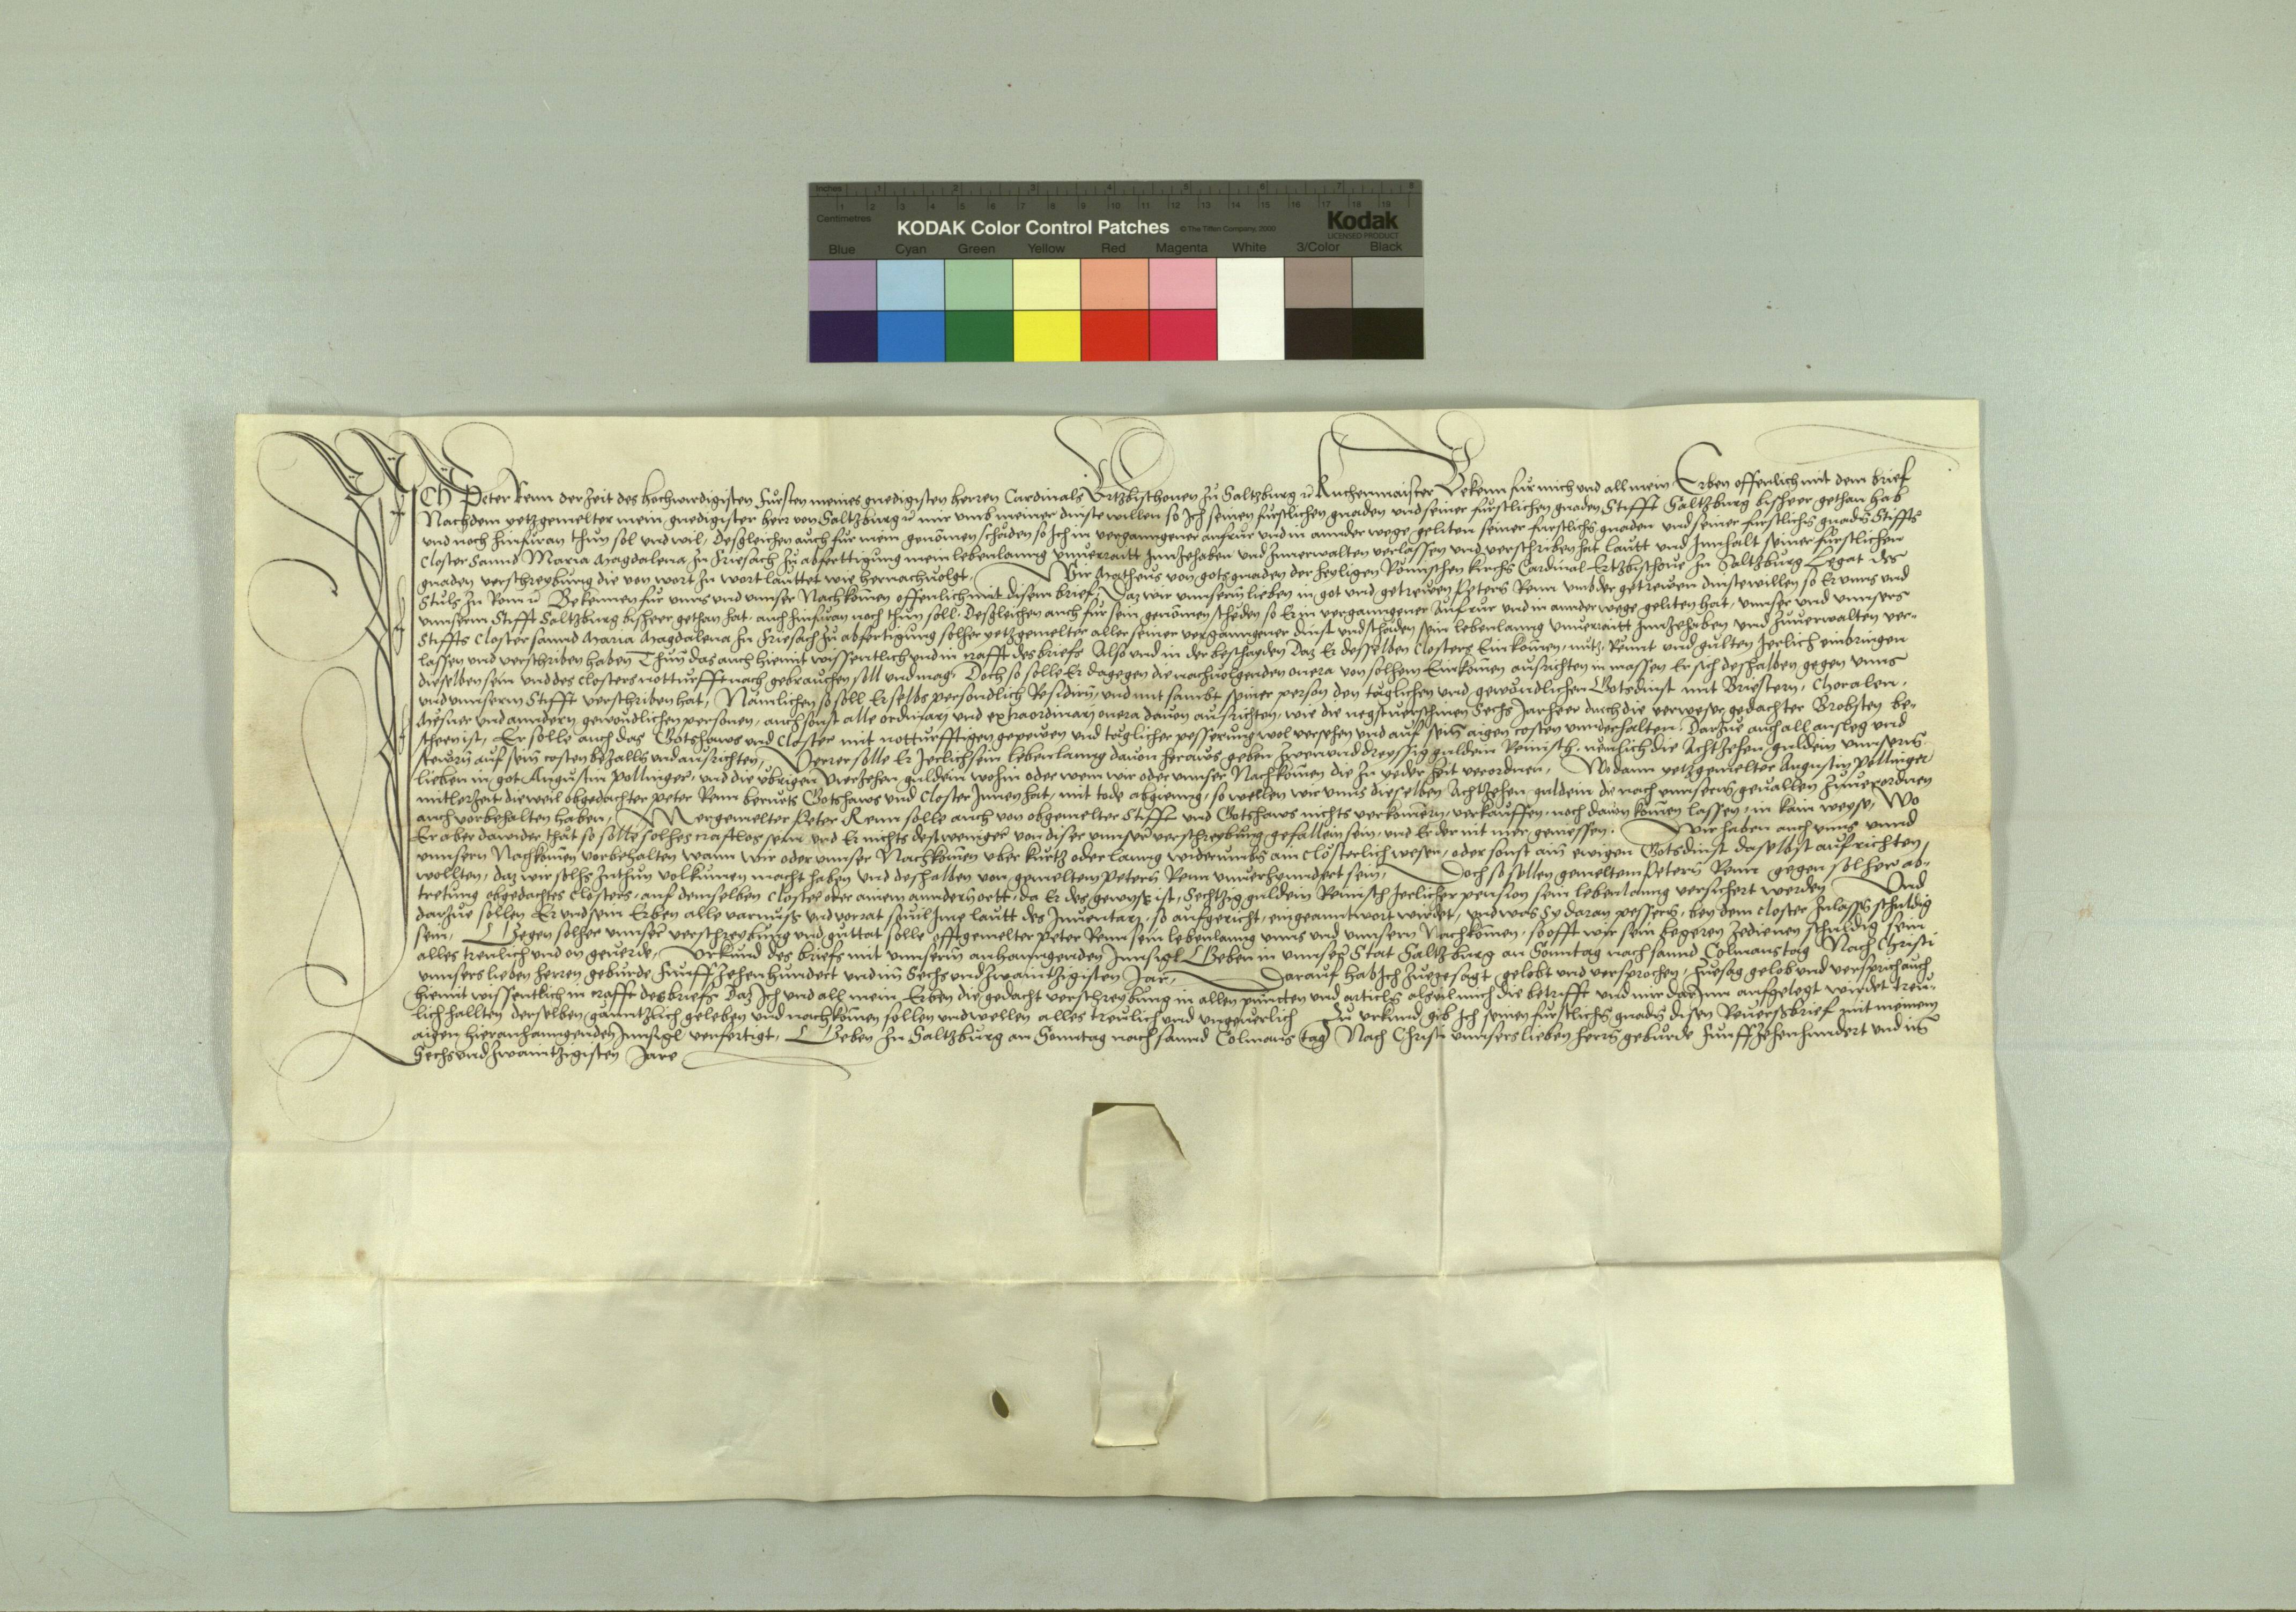 Inches 1 2 3 4 5 6 7 8
Centimetres 1 2 3 4 5 6 7 8 9 10 11 12 13 14 15 16 17 18 19
KODAK Color Control Patches © The Tiffen Company, 2000 Kodak
LICENSED PRODUCT
Blue Cyan Green Yellow Red Magenta White 3/Color Black
Ich Peter Renn der Zeit des hochwirdigisten Fursten meines gnedigisten herren Cardinals Ertzbischouen zu Saltzburg Kuchenmaister Bekenn fur mich und all mein Erben offenlich mit dem brief
Nachdem yetzgemelter mein gnedigister herr von Saltzburg mir umb meiner dinste willen so Ich seinen furstlichen gnaden und seiner furstlichen gnaden Stifft Saltzburg bissheer gethan hab
und noch hinfuran thun sol und wil, Dessgleichen auch fur mein genomen schaden so Ich in verganngener aufrur und in annder wege geliten seiner furstlichn gnaden und seiner furstlichn gnadn Stiffts
Closter Sannd Maria Magdalena zu Friesach zu abferttigung mein lebenlanng unuerraitt Innzehaben und zuuerwalten verlassen und verschriben hat lautt und Innhalt seiner furstlichen
gnaden verschreybung die von wort zu wort lauttet wie hernachuolgt, Wir Matheus von gots gnaden der heyligen Römischen kirchn Cardinal Ertzbischoue zu Saltzburg Legat des
Stuls zu Rom Bekennen fur unns und unnser Nachkomen offenlich mit disem brief, Daz wir unnserm lieben in got und getrewen Petern Renn umb der getrewen dinste willen so Er unns und
unnserm Stifft Saltzburg bissheer gethan hat, auch hinfuran noch thun soll, Dessgleichen auch fur sein genomen schäden so Er in verganngener Aufrur und in annder wege geliten hat, unnser und unnsers
Stiffts Closter sannd Maria Magdalena zu Friesach zu abfertigung solher yetzgemelter aller seiner verganngener dinst und schäden sein lebenlanng unuerraitt Innzehaben und zuuerwalten ver-
lassen und verschriben haben Thun das auch hiemit wissentlich und in crafft des briefs Also und in der beschaiden Daz Er desselben Closters Einkomen, nutz, Rennt und gulten Jerlich einbringen
dieselben sein und des Closters notturfft nach gebrauchen soll und mag, Doch so solle Er dagegen die nachuolgenden onera von solhem Einkomen ausrichten in massen Er sich deshalben gegen unns
und unnserm Stifft verschriben hat, Nämlichen so soll Er selbs persondlich Residirn, und mit sambt seiner person den täglichen und gewondlichen Gotsdinst mit Briestern, Choralen,
Mesner und anndern gewondlichen personen, auch sonst alle ordinarj und extraordinarj onera dauon ausrichten, wie die negstuerschinen Sechs Jar heer durch die verweser gedachter Brobsten be-
scheen ist, Er solle auch das Gotshaws und Closter mit notturfftigen gepewen und täglicher pesserung wol versehen und auf sein aigen costen unnderhalten. Darzue auch all anslag und
stewrn auf sein costen bezalln und ausrichten, Verrer solle Er Jerlich sein lebenlanng dauon heraus geben zwenunddreyssig guldein Reinisch, nemlich die Achtzehen guldein unnserm
lieben in got Augustin Pollinger, und die ubrigen Vierzehen guldein wohin oder wem wir oder unnser Nachkomen die zu yeder Zeit verordnen, Wo dann yetzgemelter Augustin Pollinger
mitlerzeit dieweil obgedachter Peter Renn beruerts Gotshaws und Closter Innen hat, mit tode abgienng, so wellen wir unns dieselben Achtzehen guldein die nach unnserm geuallen zuuerordnen
auch vorbehalten haben, Mergemelter Peter Renn solle auch von obgemelter Stifft und Gotshaws nichts verkomern, verkauffen, noch dauon komen lassen, in kain weyse, Wo
Er aber dawider thät so solle solhes crafftlos sein und Er nichts destweniger von diser unnser verschreybung gefallen sein, und Er der nit mer geniessen. Wir haben auch unns unnd
unnsern Nachkomen vorbehalten wann wir oder unnser Nachkomen uber kurtz oder lanng widerumbs ain Clösterlich wesen, oder sonst ain ewigen Gotsdinst daselbst aufrichten
wollten, daz wir solhs zuthun volkumen macht haben und deshalben von gemeltem Petern Renn unuerhinndert sein, Doch so sollen gemeltem Petern Renn gegen solher ab-
tretung obgedachtes Closters, auf demselben Closter oder ainem anndern ortt, da Er des gewyss ist, Sechtzig guldein Reinisch Jerlicher pension sein lebenlanng versichert werden Und
darzue sollen Er und sein Erben alle varnuss und vorrat souil Ime lautt des Inuentarj, so aufgericht, eingeanntwort wirdet, und was Sy daran pessern, bey dem Closter zulassn schuldig
sein, Gegen solher unnser verschreybung und guttat solle offtgemelter Peter Renn sein lebenlanng unns und unnsern Nachkomen, so offt wir sein begeren zedienen schuldig sein
alles treulich und on geuerde, Urkund des briefs mit unnserm anhanngenden Innsigl Geben in unnser Stat Saltzburg an Sonntag nach sannd Colmanstag Nach Christi
unnsers lieben herren geburde Funffzehenhundert und im Sechsundzwaintzigisten Jar, Darauf hab Ich zuegesagt, gelobt und versprochen, zuesag, gelob und versprich auch
hiemit wissentlich in crafft des briefs Daz Ich und all mein Erben die gedacht verschreybung in allen puncten und articln als vil mich die betrifft und mir darInn aufgelegt wirdet treu-
lich hallten derselben ganntzlich geleben und nachkomen sollen und wellen alles treulich und ungeuerlich Zu urkund gib Ich seinen furstlichn gnadn disen Reuerssbrief mit meinem
aigen hieranhanngenden Innsigl verfertigt, Geben zu Saltzburg an Sonntag nach sannd Colmans tag Nach Christi unnsers lieben herrn geburde Funffzehenhundert und im
Sechsundzwaintzigisten Jare